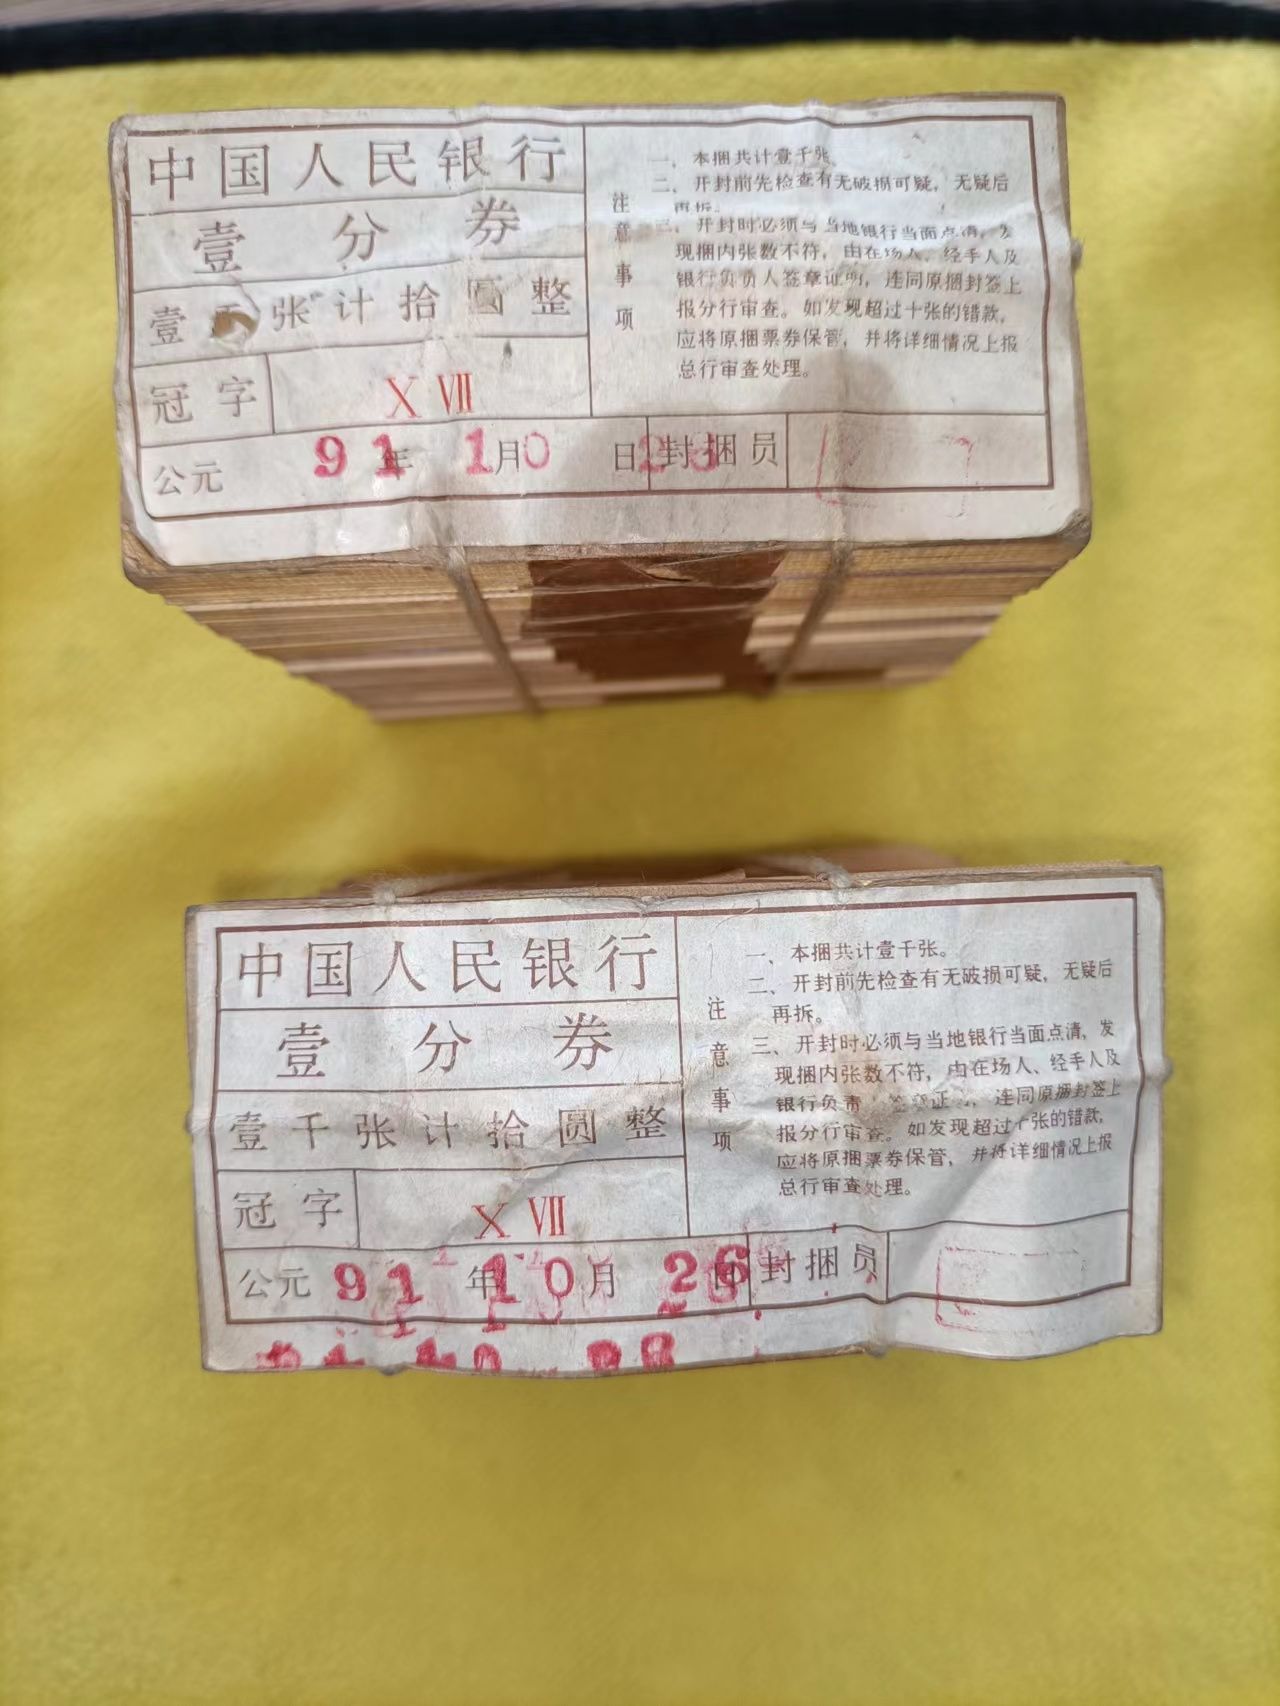 中国人民银行
壹分券
壹 张计拾圆整
冠字 X Ⅶ
公元 91年 1月0 日2 封捆员
注意事项
一、本捆共计壹千张
二、开封前先检查有无破损可疑，无疑后
再拆。
三、开封时必须与当地银行当面点清，发
现捆内张数不符，由在场人、经手人及
银行负责人签章证明，连同原捆封签上
报分行审查。如发现超过十张的错款，
应将原捆票券保管，并将详细情况上报
总行审查处理。
中国人民银行
壹分券
壹千张计拾圆整
冠字 X Ⅶ
公元 91年10月26日 封捆员
注意事项
一、本捆共计壹千张。
二、开封前先检查有无破损可疑，无疑后
再拆。
三、开封时必须与当地银行当面点清，发
现捆内张数不符，由在场人、经手人及
银行负责 签章证 ，连同原捆封签上
报分行审查。如发现超过十张的错款，
应将原捆票券保管，并将详细情况上报
总行审查处理。